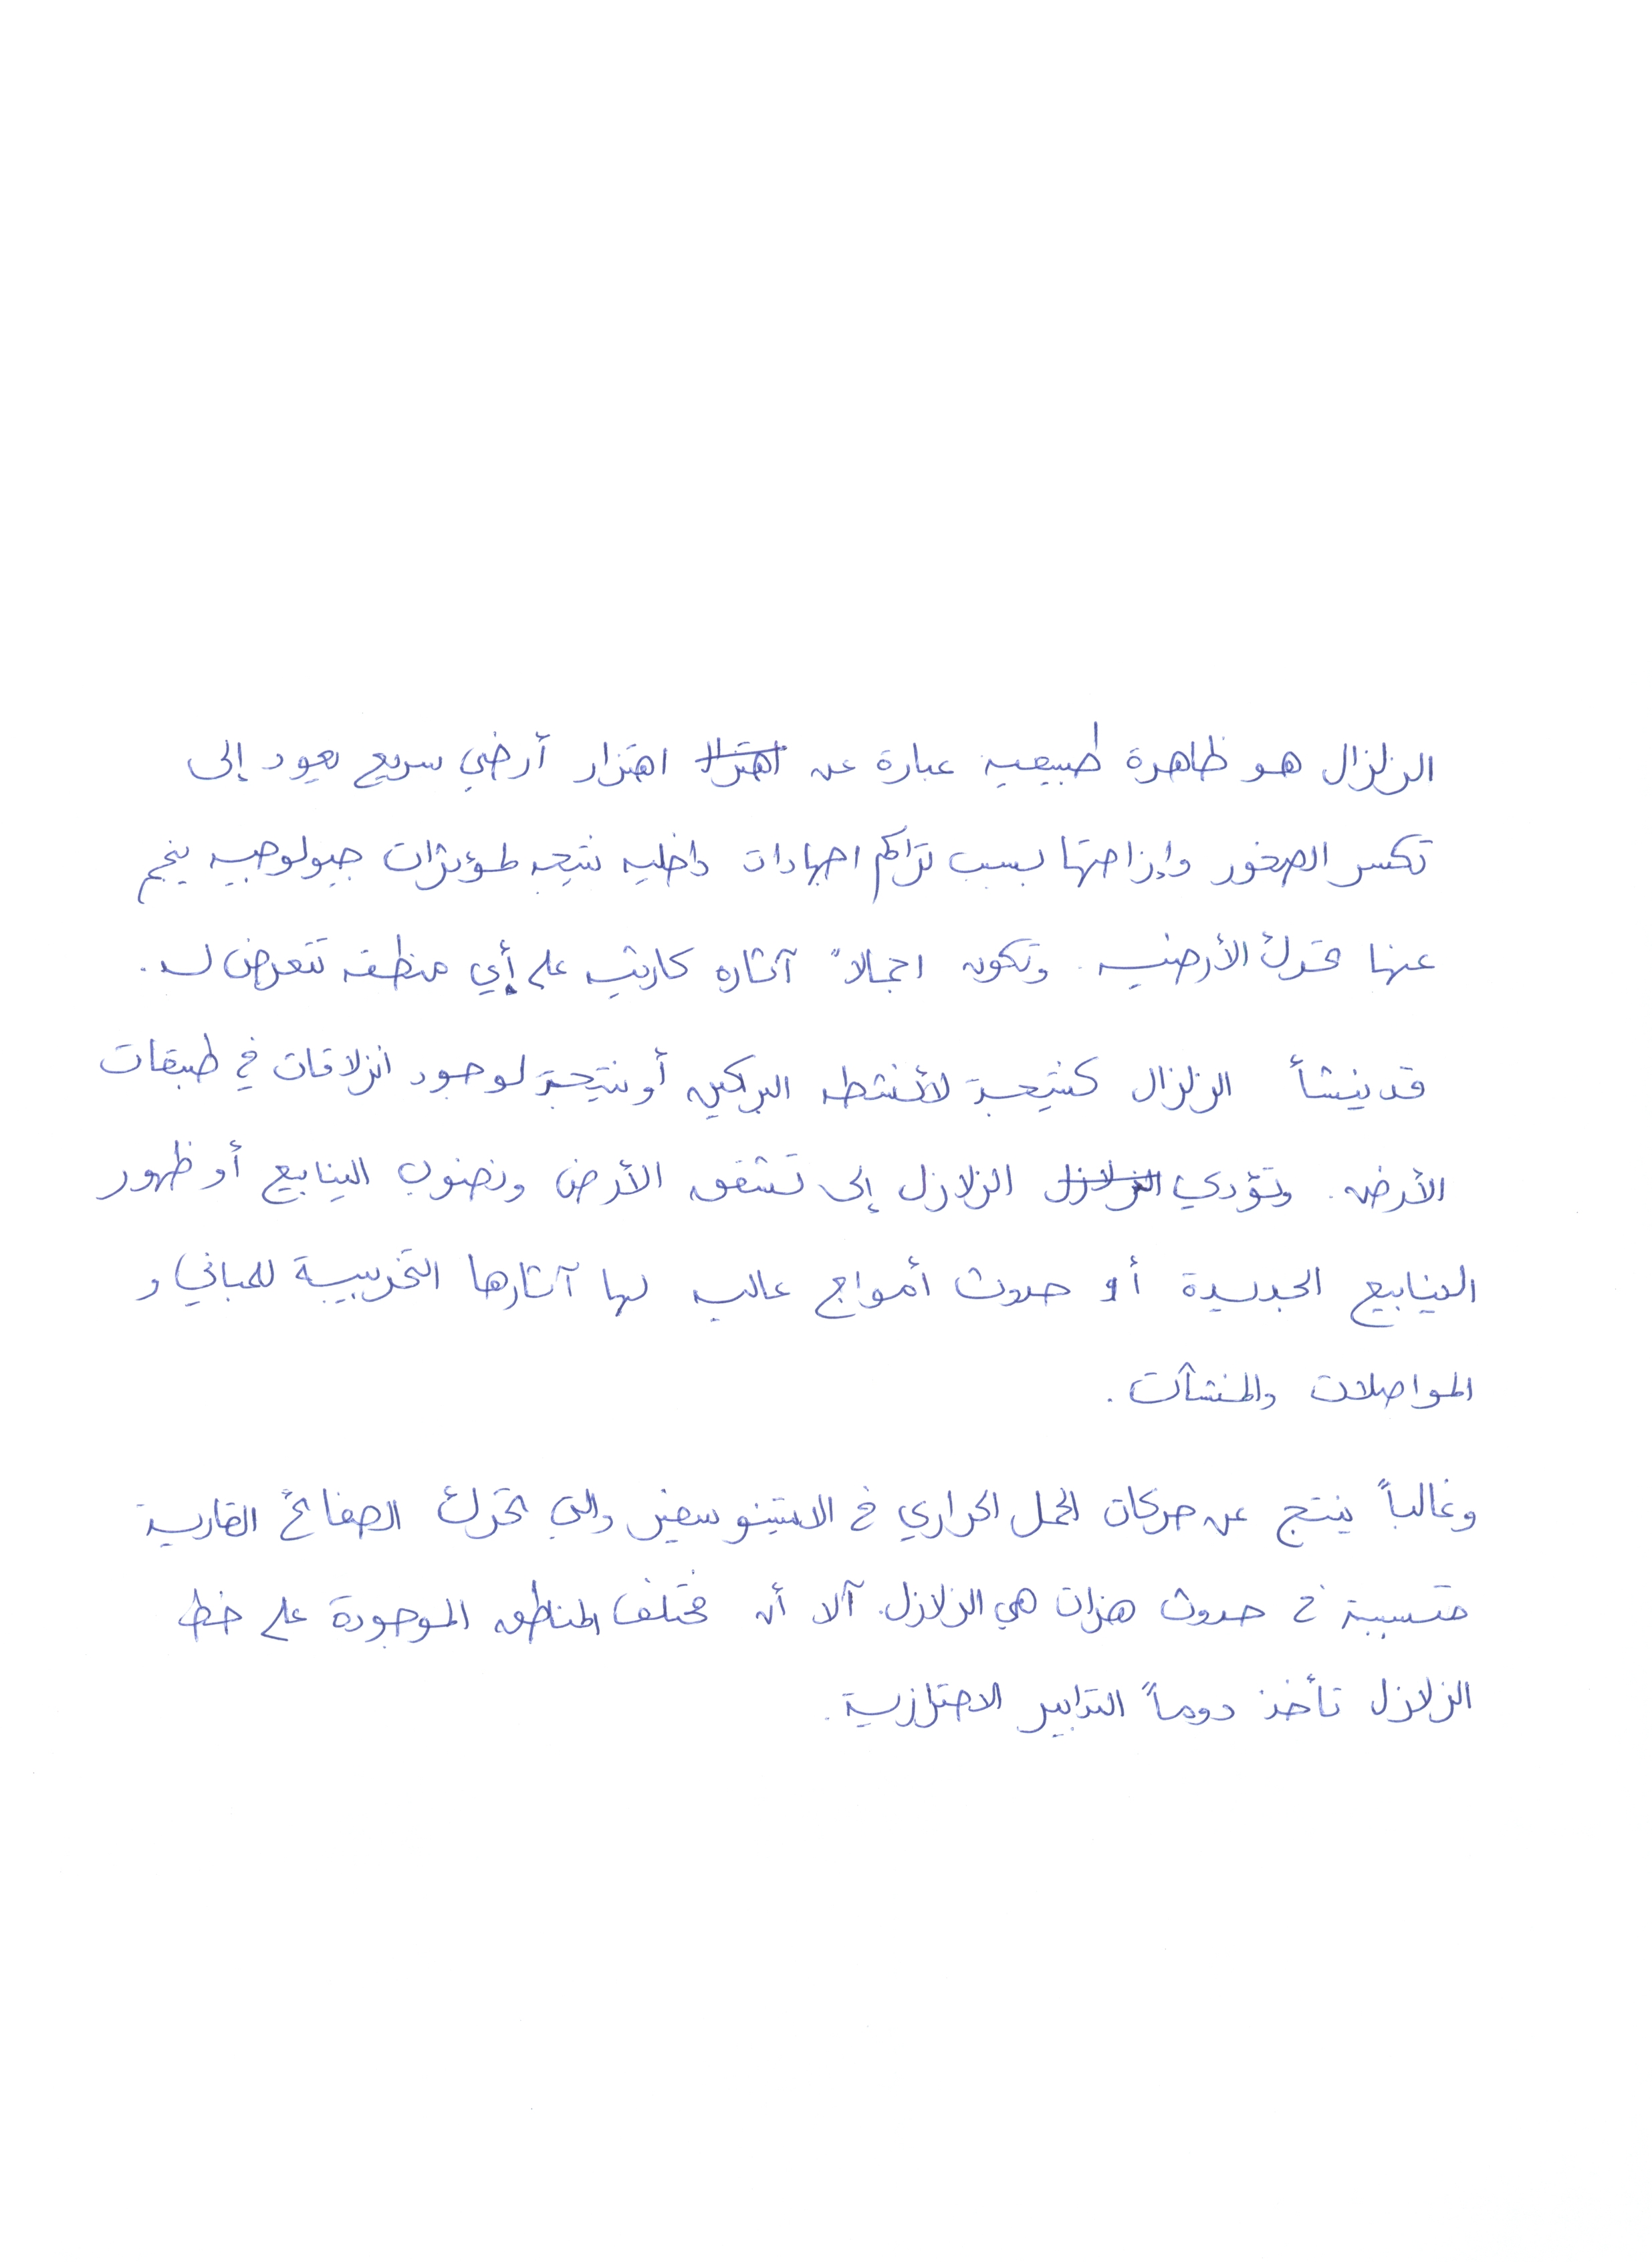 الزلزال هو ظاهرة طبيعية عبارة عن اهتزاز أرضي سريع يعود إلى
تكسر الصخور وإزاحتها بسبب تراكم اجهادات داخليه نتيجه لمؤثرات جيولوجيه ينجم
عنها تحرك الأرضيه. وتكون اجمالاً آثاره كارثيه على أي منطقه تتعرض له.
قد ينشأ الزلزال كنتيجة لأنشطه البراكين أو نتيجة لوجود انزلاقات في طبقات
الأرض. وتؤدي الزلازل إلى تشقق الأرض ونضوب الينابيع أو ظهور
الينابيع الجديدة أو حدوث أمواج عاليه لها آثارها التخريبية للمباني و
المواصلات والمنشآت.
وغالباً ينتج عن حركات الحمل الحراري في الاستينوسفير والتي تحرك الصفائح القارية
متسببة في حدوث هزات هي الزلازل. آلا أن مختلف المناطق الموجودة على خط
الزلازل تأخذ دوماً التدابير الاحترازية.